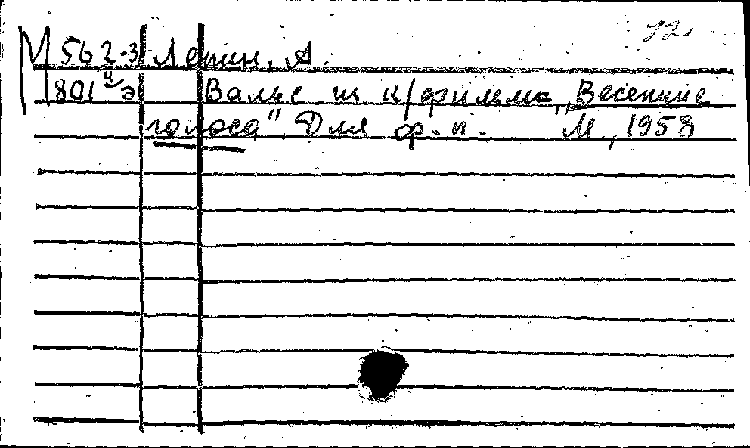 72.
М 562-3 Лепин, А.
801 Вальс из к/фильма "Весенние
голоса". Для ф.-п. М., 1958